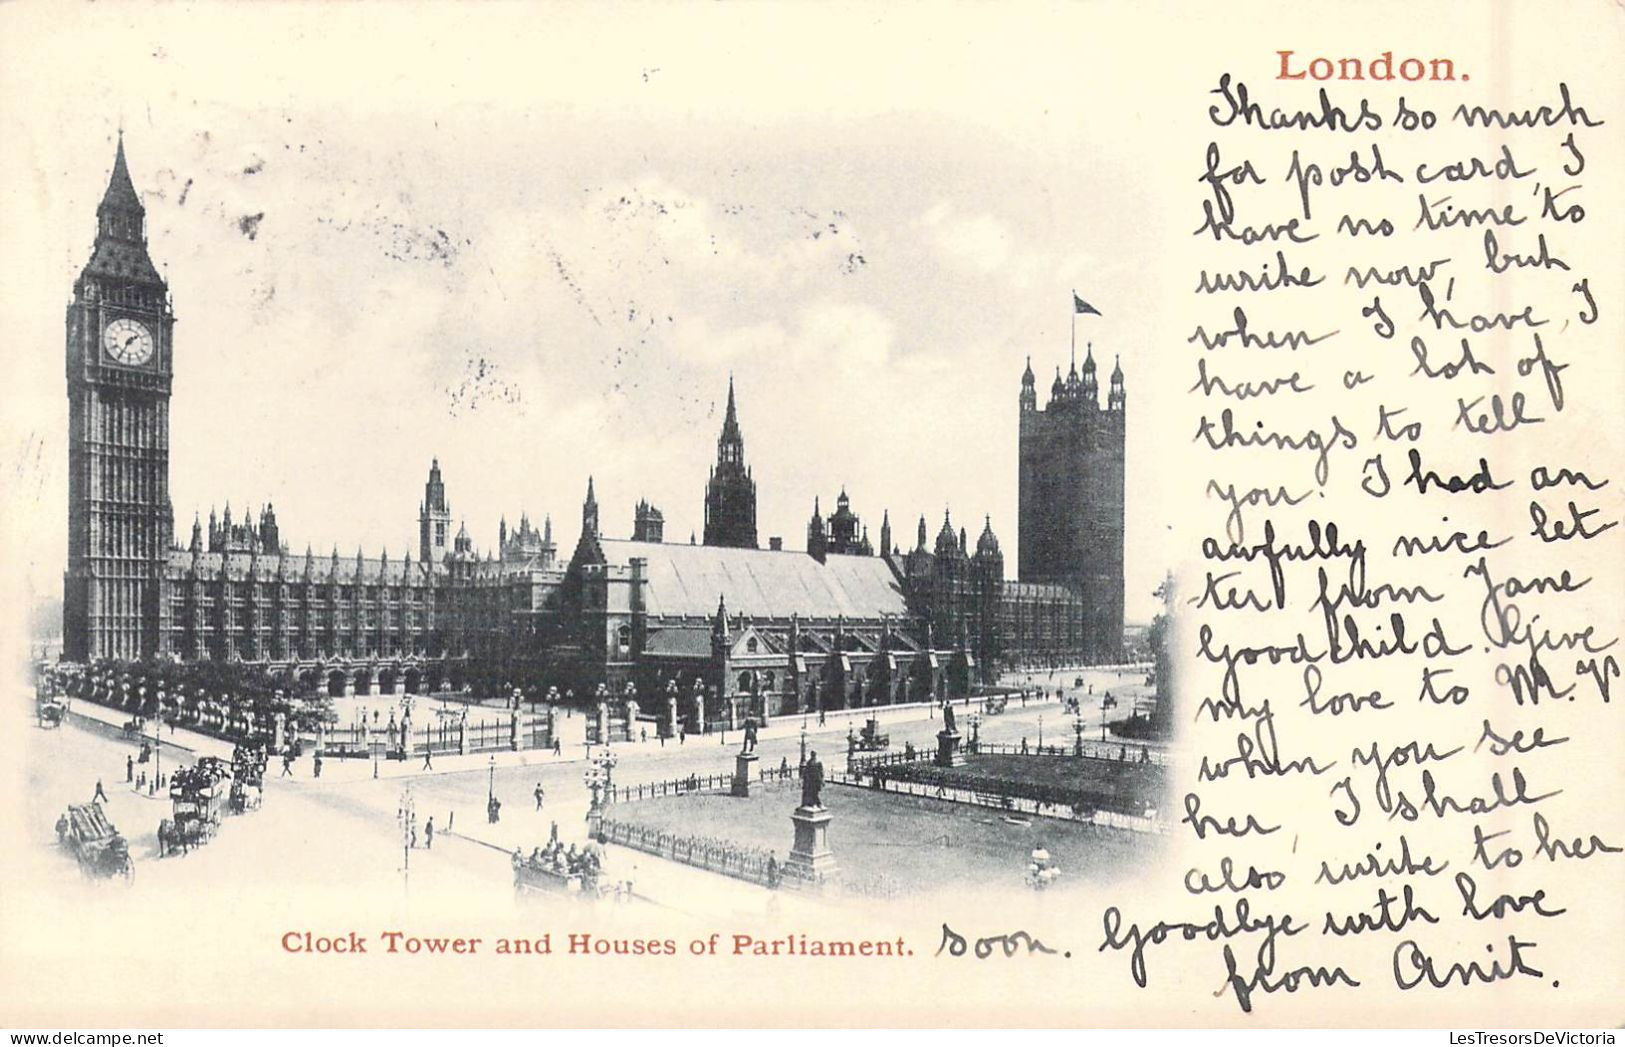 London.
Thanks so much
for post card, I
have no time to
write now, but
when I have, I
have a lot of
things to tell
you. I had an
awfully nice let
ter from Jane
Goodchild. Give
my love to M. P
when you see
her, I shall
also write to her
soon. Goodbye with love
from Anit.
Clock Tower and Houses of Parliament.
LesTresorsDeVictoria